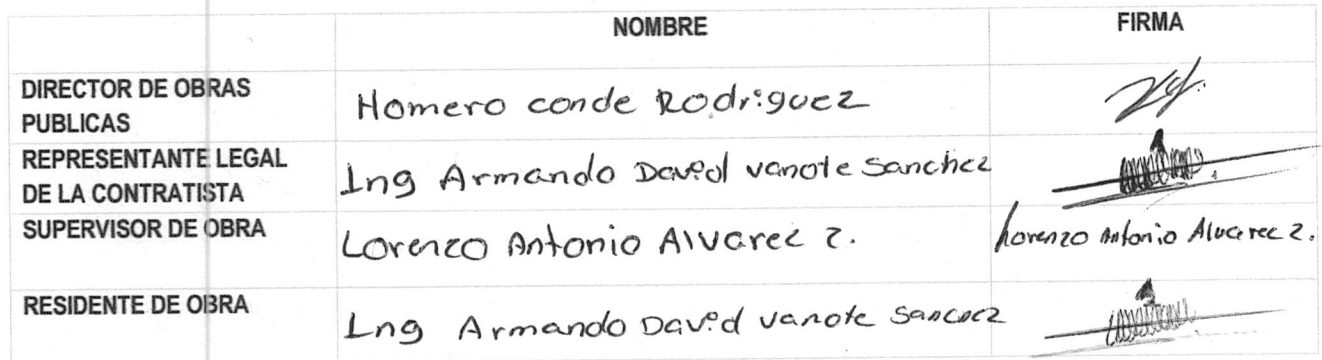 NOMBRE FIRMA
DIRECTOR DE OBRAS PUBLICAS Homero conde Rodriguez
REPRESENTANTE LEGAL DE LA CONTRATISTA Ing Armando David vanote Sanchez
SUPERVISOR DE OBRA Lorenzo Antonio Alvarez Z. Lorenzo Antonio Alvarez Z.
RESIDENTE DE OBRA Ing Armando David vanote Sanchez